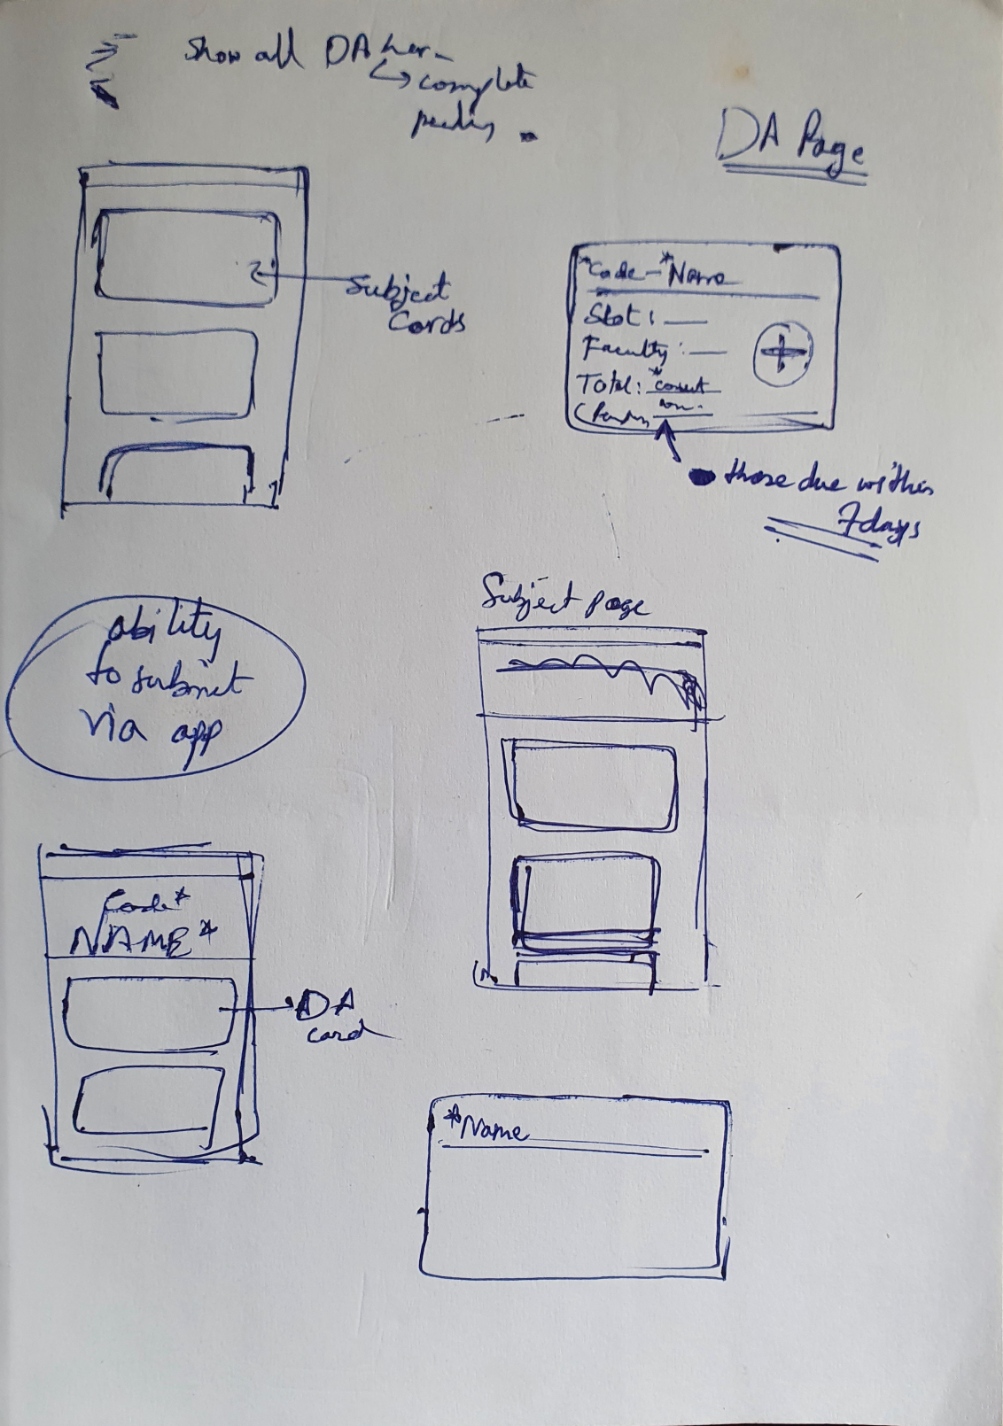 Show all DA here
↳ complete
pending
DA Page
Subject
Cards
*Code - *Name
Slot :
Faculty :
Total : *count
(Pending
those due within
7 days
ability
to submit
via app
Subject page
Code*
NAME*
DA
card
*Name